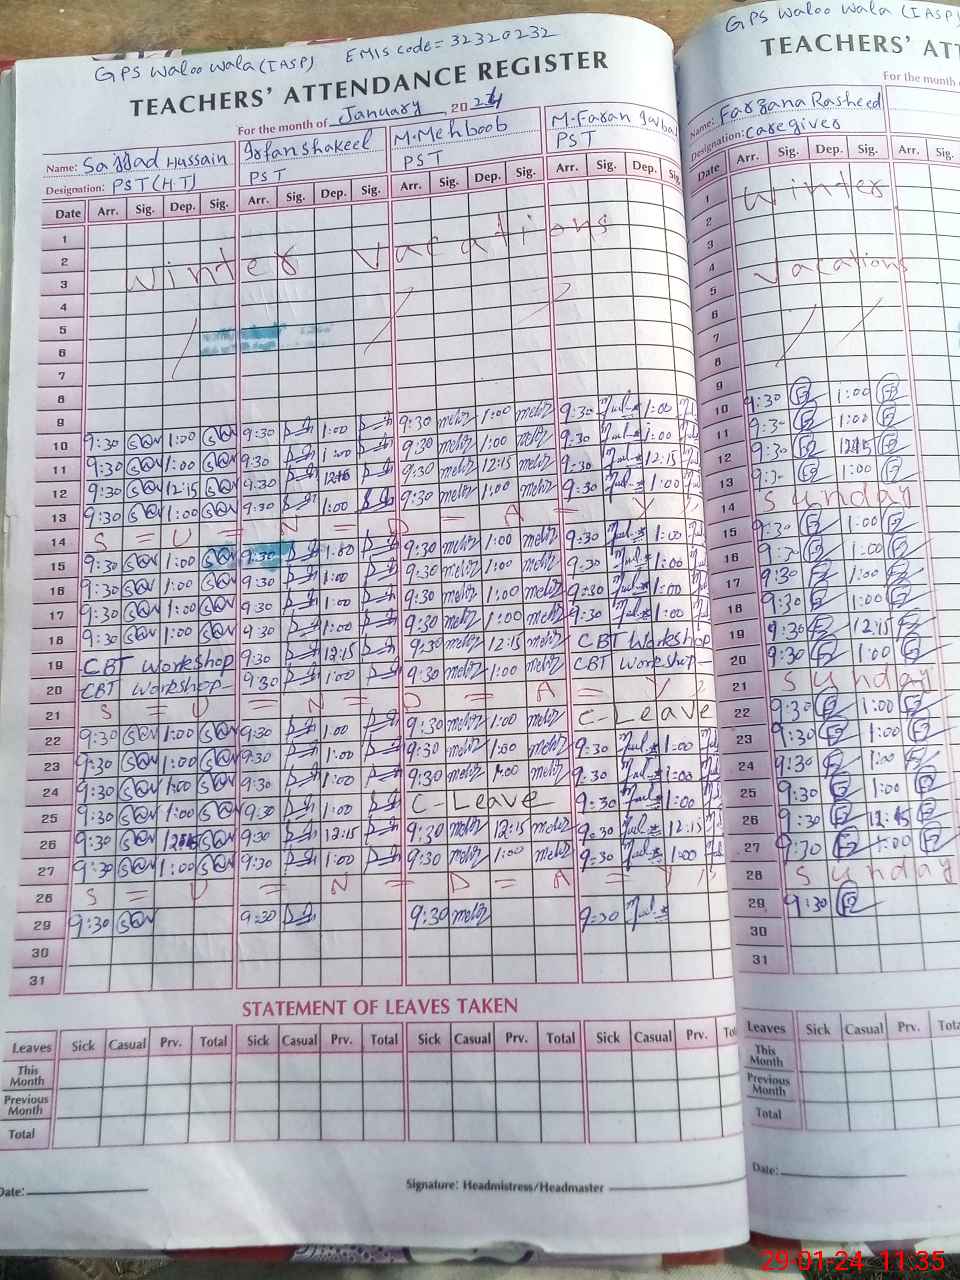 GPS Waloo Wala (IASP) EMIS code = 32320232
TEACHERS' ATTENDANCE REGISTER
For the month of January 2024
Name: Sajjad Hussain Irfan shakeel M. Mehboob M. Faran Iqbal
Designation: PST (H.T) PST PST PST
Date Arr. Sig. Dep. Sig. Arr. Sig. Dep. Sig. Arr. Sig. Dep. Sig. Arr. Sig. Dep. Sig.
1
2 Winter Vacations
3
4
5
6
7
8
9 9:30 1:00 9:30 1:00 9:30 1:00 9:30 1:00
10 9:30 1:00 9:30 1:00 9:30 1:00 9:30 1:00
11 9:30 12:15 9:30 9:30 12:15 9:30 12:15
12 9:30 1:00 9:30 1:00 9:30 1:00 9:30 1:00
13
14 S = U = N = D = A = Y
15 9:30 1:00 9:30 1:00 9:30 1:00 9:30 1:00
16 9:30 1:00 9:30 1:00 9:30 1:00 9:30 1:00
17 9:30 1:00 9:30 1:00 9:30 1:00 9:30 1:00
18 9:30 1:00 9:30 1:00 9:30 1:00 9:30 1:00
19 CBT Workshop 9:30 12:15 9:30 12:15 CBT Workshop
20 CBT Workshop 9:30 1:00 9:30 1:00 CBT Workshop
21 S = U = N = D = A = Y
22 9:30 1:00 9:30 1:00 9:30 1:00 C-Leave
23 9:30 1:00 9:30 1:00 9:30 1:00 9:30 1:00
24 9:30 1:00 9:30 1:00 9:30 1:00 9:30 1:00
25 9:30 1:00 9:30 1:00 C-Leave 9:30 1:00
26 9:30 9:30 12:15 9:30 12:15 9:30 12:15
27 9:30 1:00 9:30 1:00 9:30 1:00 9:30 1:00
28 S = U = N = D = A = Y
29 9:30 9:30 9:30 9:30
30
31
STATEMENT OF LEAVES TAKEN
Leaves Sick Casual Prv. Total Sick Casual Prv. Total Sick Casual Prv. Total Sick Casual Prv.
This Month
Previous Month
Total
Date: Signature: Headmistress/Headmaster
GPS Waloo Wala (IASP)
TEACHERS' ATT
For the month
Name: Farzana Rasheed
Designation: Caregiver
Date Arr. Sig. Dep. Sig. Arr. Sig.
1 Winter
2
3
4 Vacations
5
6
7
8
9
10 9:30 1:00
11 9:30 1:00
12 9:30
13 9:30 1:00
14 Sunday
15 9:30 1:00
16 9:30 1:00
17 9:30 1:00
18 9:30 1:00
19 9:30 12:15
20 9:30 1:00
21 Sunday
22 9:30 1:00
23 9:30 1:00
24 9:30 1:00
25 9:30 1:00
26 9:30
27 9:30 1:00
28 Sunday
29 9:30
30
31
Leaves Sick Casual Prv.
This Month
Previous Month
Total
Date:
29-01-24 11:35